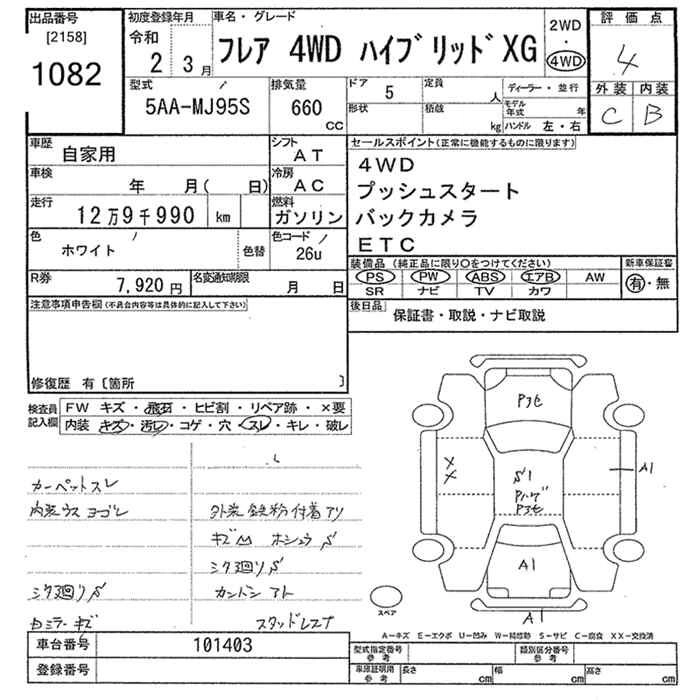 出品番号
[2158]
1082
初度登録年月
令和
2年 3月
車名・グレード
フレア 4WD ハイブリッド XG
2WD
・
4WD
評価点
4
外装 内装
C B
型式
5AA-MJ95S
排気量
660
CC
ドア 5
定員 人
形状
積載 kg
ディーラー・並行
モデル年式 年
ハンドル 左・右
車歴
自家用
シフト
AT
車検
年 月( 日)
冷房
AC
走行
12万9千990 km
燃料
ガソリン
色
ホワイト
色替
色コード
26u
R券
7,920円
名変通知期限
月 日
セールスポイント(正常に機能するものに限ります)
4WD
プッシュスタート
バックカメラ
ETC
装備品 (純正品に限り○をつけてください)
新車保証書
PS PW ABS エアB AW
有・無
SR ナビ TV カワ
後日品
保証書・取説・ナビ取説
注意事項申告欄(不具合内容等は具体的に記入して下さい)
修復歴 有〔箇所 〕
検査員記入欄
FW キズ・飛石・ヒビ割・リペア跡・×要
内装 キズ・汚レ・コゲ・穴・スレ・キレ・破レ
カーペットスレ
内装ウスヨゴレ
外装鉄粉付着アリ
ホシュウ S
ミク廻りS
ミク廻りS
カントンアト
Dミラーキズ
スタッドレス7
P3セ
XX
S1
P3セ
A1
A1
A1
スペア
A-キズ E-エクボ U-凹み W-補修跡 S-サビ C-腐食 XX-交換済
車台番号
101403
登録番号
型式指定番号
参考
類別区分番号
参考
車庫証明用
参考
長さ cm
幅 cm
高さ cm